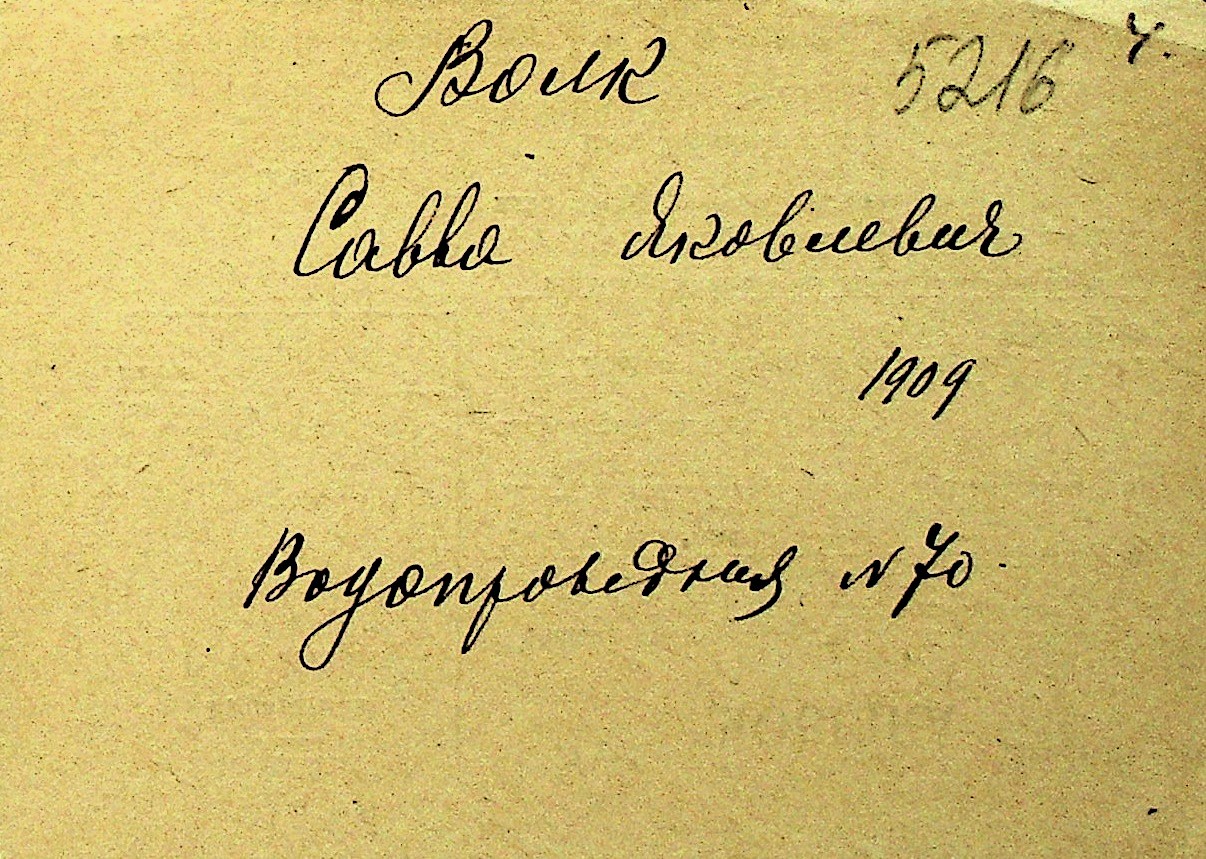 Волк 5216 ч.
Савва Яковлевич
1909
Водопроводная N 70.